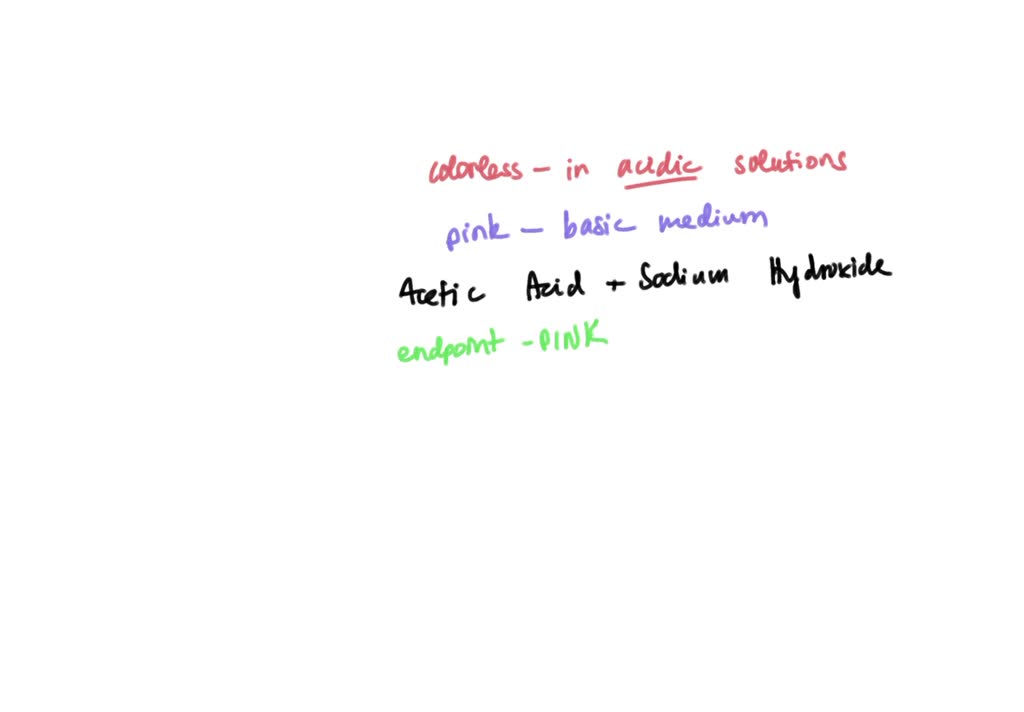 colorless - in acidic solutions
pink - basic medium
Acetic Acid + Sodium Hydroxide
endpoint - PINK